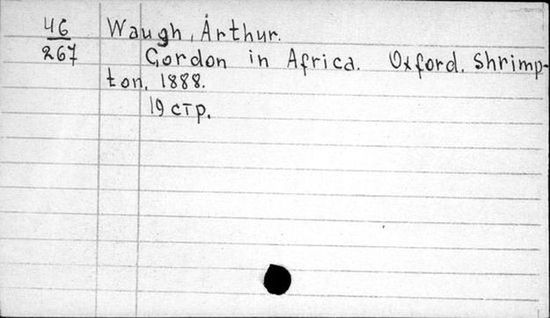 46 Waugh, Arthur.
267 Gordon in Africa. Oxford. Shrimp-
ton. 1888.
19 стр.